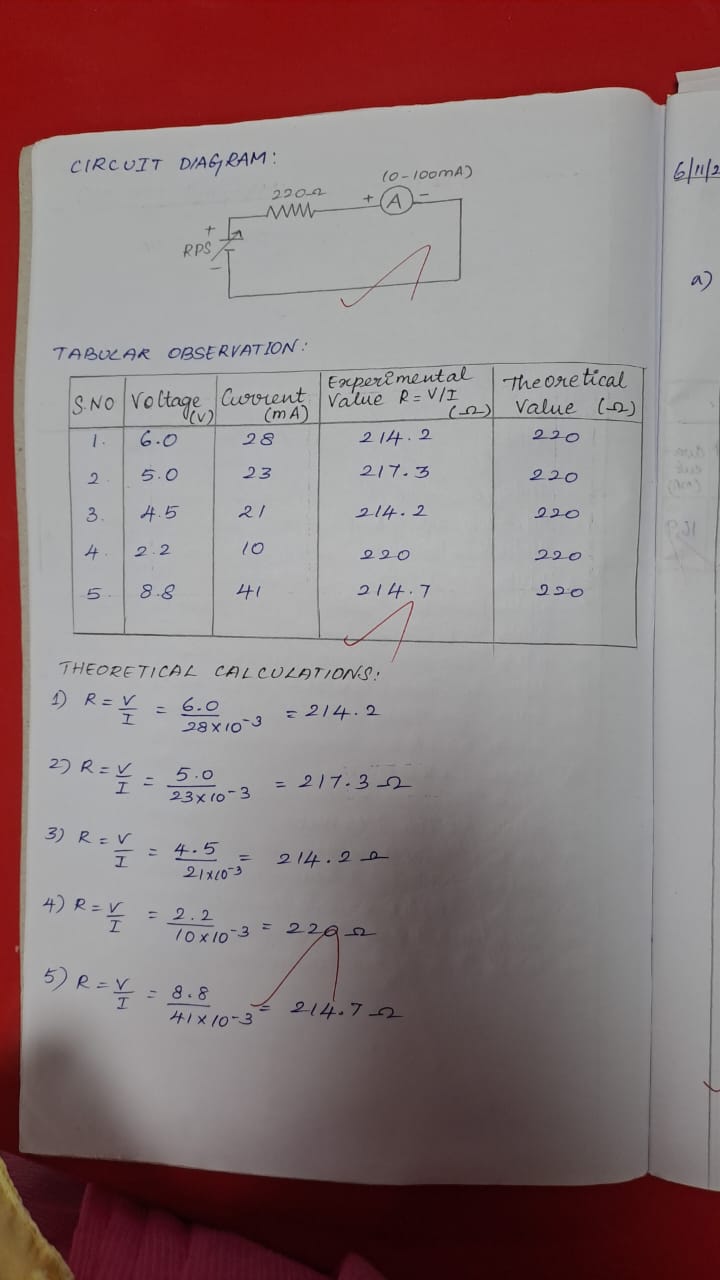 CIRCUIT DIAGRAM:
(0-100mA)
220Ω
+ A -
+
RPS
-
TABULAR OBSERVATION:
S.NO Voltage (V) Current (mA) Experimental Value R = V/I (Ω) Theoretical Value (Ω)
1. 6.0 28 214.2 220
2. 5.0 23 217.3 220
3. 4.5 21 214.2 220
4. 2.2 10 220 220
5. 8.8 41 214.7 220
THEORETICAL CALCULATIONS:
1) R = V/I = 6.0/28×10-3 = 214.2
2) R = V/I = 5.0/23×10-3 = 217.3 Ω
3) R = V/I = 4.5/21×10-3 = 214.2 Ω
4) R = V/I = 2.2/10×10-3 = 220 Ω
5) R = V/I = 8.8/41×10-3 = 214.7 Ω
6/11/2
a)